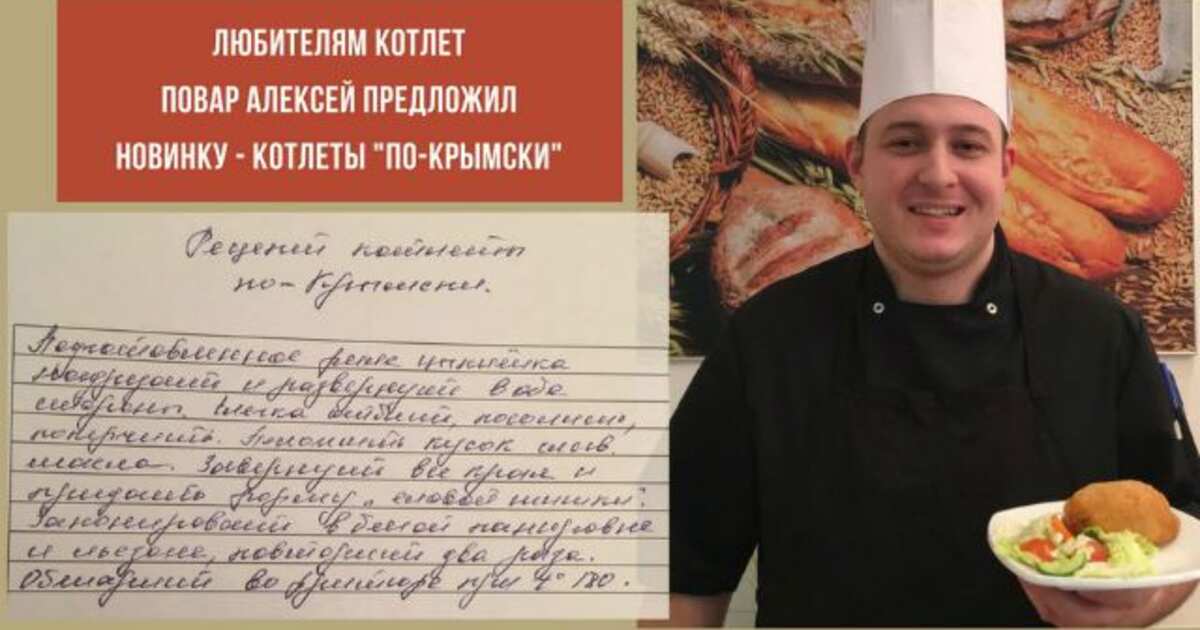 ЛЮБИТЕЛЯМ КОТЛЕТ
ПОВАР АЛЕКСЕЙ ПРЕДЛОЖИЛ
НОВИНКУ - КОТЛЕТЫ "ПО-КРЫМСКИ"
Рецепт котлеты
по-Крымски.
Подготовленное филе
надрезать и развернуть в обе
стороны. Слегка отбить, посолить,
поперчить. Положить кусок слив.
масла. Завернуть все края и
придать форму "еловой шишки".
Запанировать в белой панировке
и льезоне, повторить два раза.
Обжарить во фритюре при t° 180.